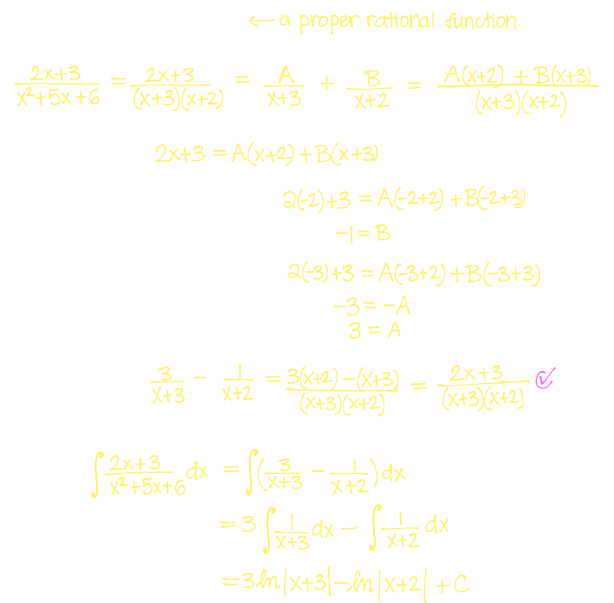 ← a proper rational function.
(2x+3)/(x²+5x+6) = (2x+3)/((x+3)(x+2)) = A/(x+3) + B/(x+2) = (A(x+2) + B(x+3))/((x+3)(x+2))
2x+3 = A(x+2) + B(x+3)
2(-2)+3 = A(-2+2) + B(-2+3)
-1 = B
2(-3)+3 = A(-3+2) + B(-3+3)
-3 = -A
3 = A
3/(x+3) - 1/(x+2) = (3(x+2) - (x+3))/((x+3)(x+2)) = (2x+3)/((x+3)(x+2)) ✓
∫ (2x+3)/(x²+5x+6) dx = ∫ (3/(x+3) - 1/(x+2)) dx
= 3 ∫ 1/(x+3) dx - ∫ 1/(x+2) dx
= 3 ln|x+3| - ln|x+2| + C